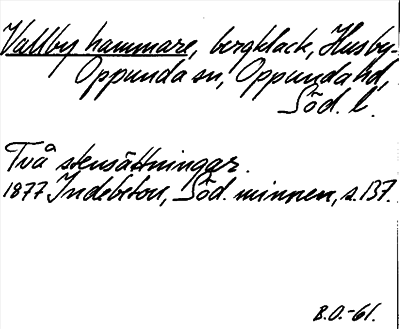 Vallby hammare, bergklack, Husby-
Oppunda sn, Oppunda hd,
Söd. l.
Två stensättningar.
1877 Indebetou, Söd. minnen, s. 137.
B.O.-61.